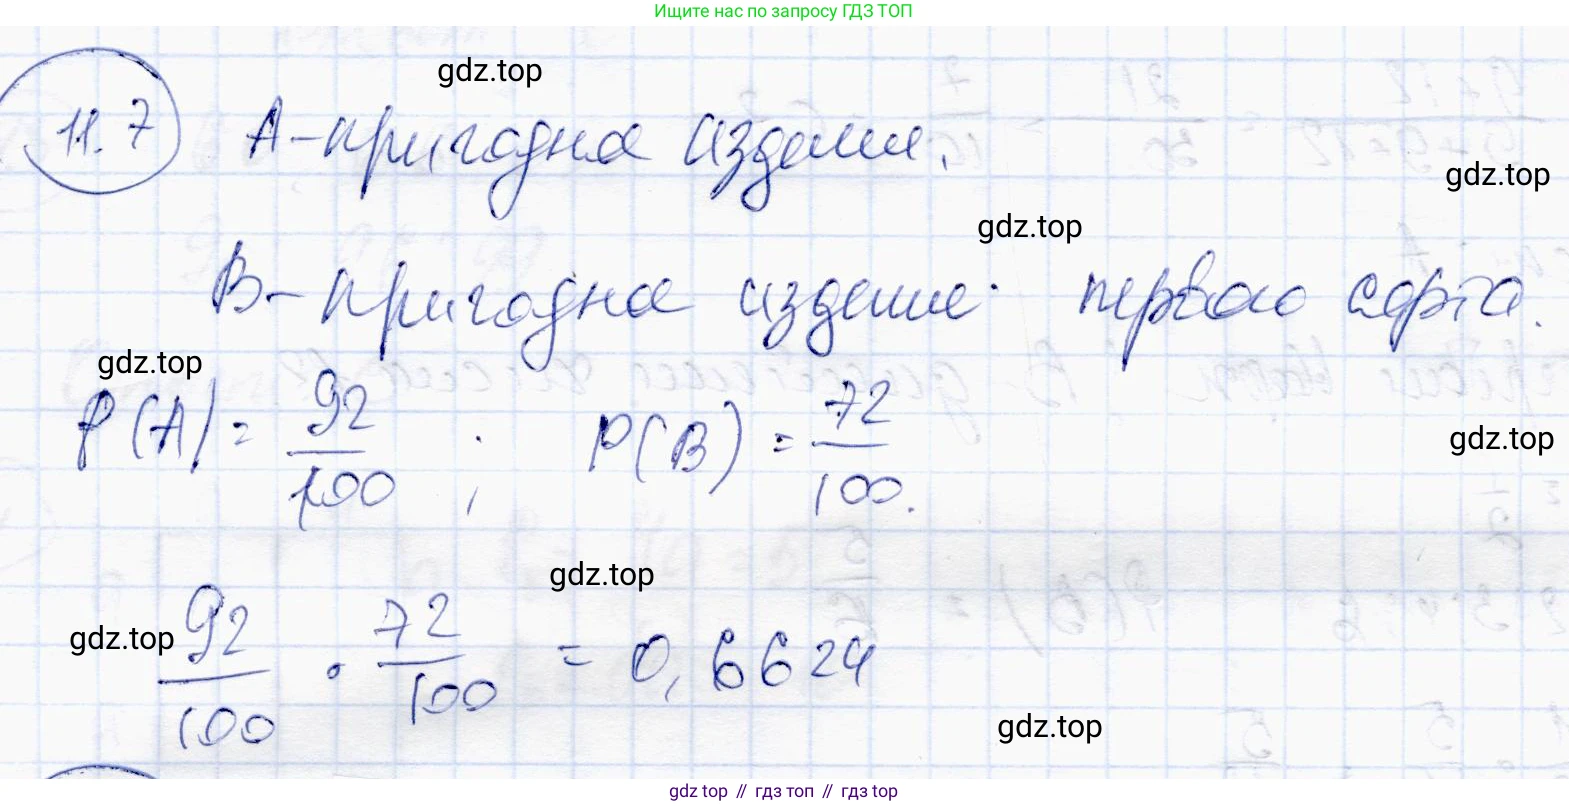 Ищите нас по запросу ГДЗ ТОП
gdz.top
11.7 A - пригодна изделие.
gdz.top
gdz.top
B - пригодна изделие первого сорта.
gdz.top
P(A) = 92/100 ; P(B) = 72/100.
gdz.top
gdz.top
gdz.top
92/100 · 72/100 = 0,6624
gdz.top
gdz top // гдз топ // гдз top